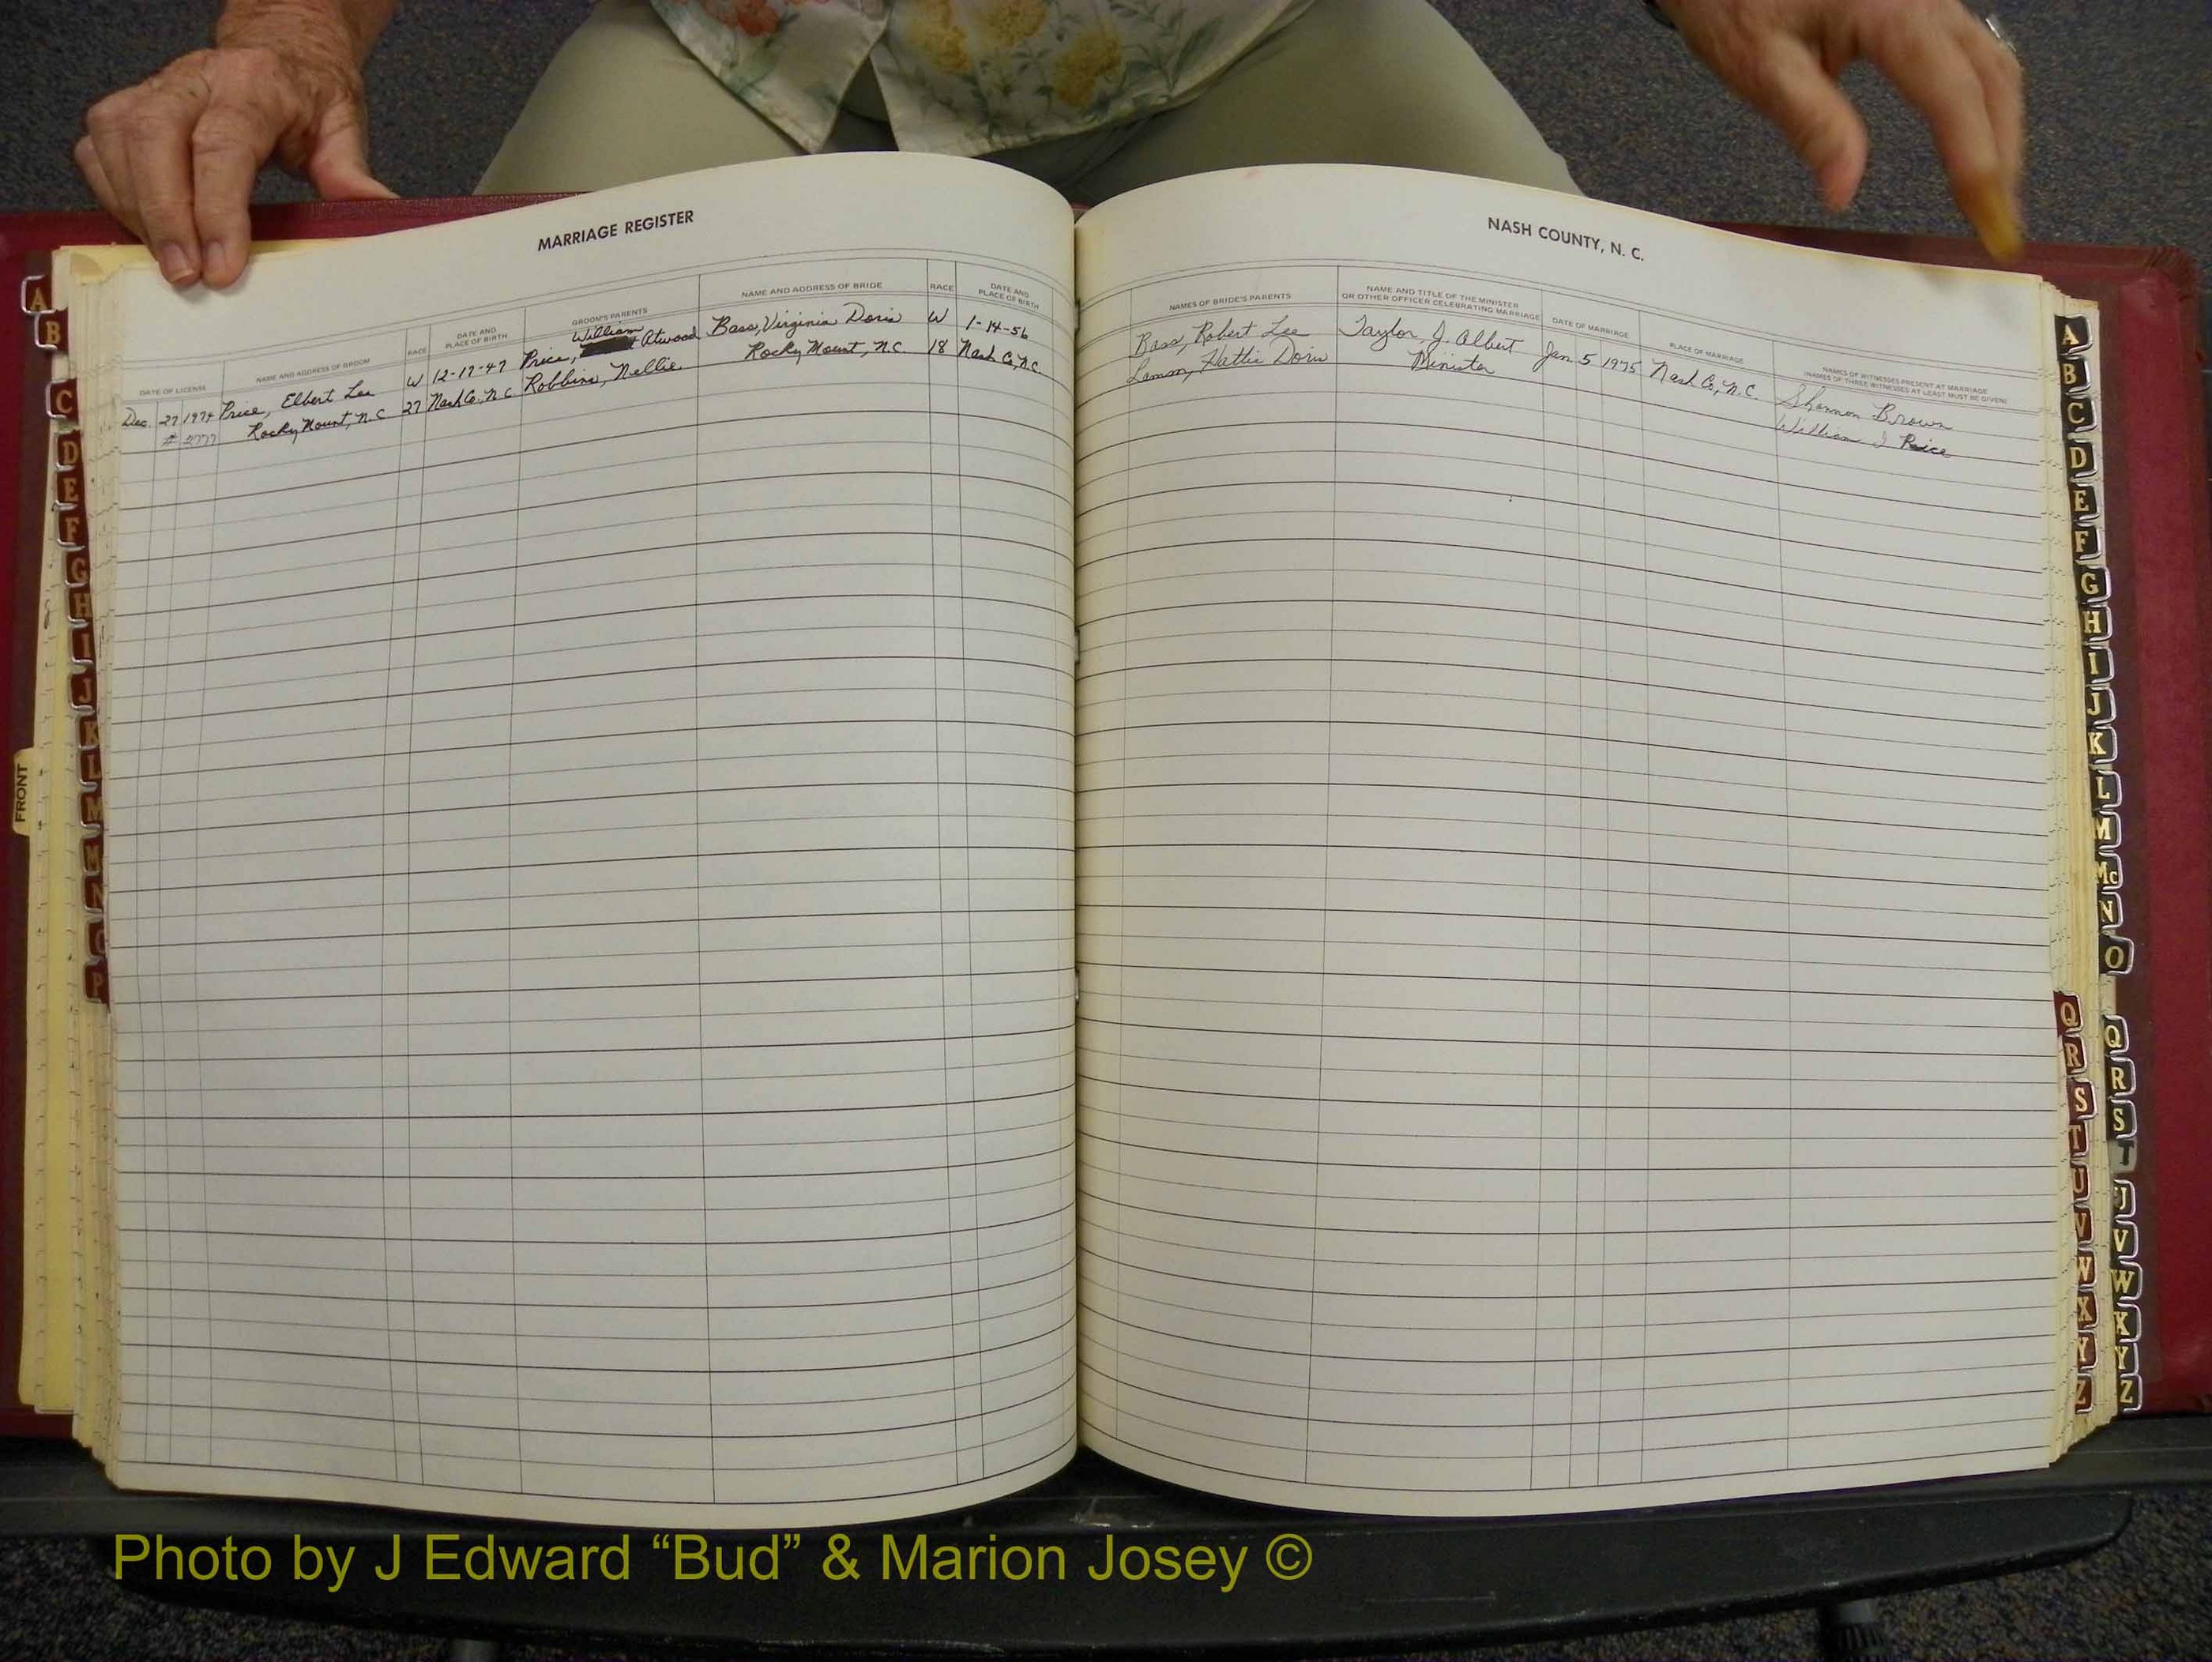 MARRIAGE REGISTER
DATE OF LICENSE
NAME AND ADDRESS OF GROOM
RACE
DATE AND
PLACE OF BIRTH
GROOM'S PARENTS
NAME AND ADDRESS OF BRIDE
RACE
DATE AND
PLACE OF BIRTH
Dec. 27 1974
# 2777
Price, Elbert Lee
Rocky Mount, N.C
W
27
12-17-47
Nash Co. N.C
William
Price, Atwood
Robbins, Nellie
Bass, Virginia Doris
Rocky Mount, N.C.
W
18
1-14-56
Nash Co, N.C.
NASH COUNTY, N. C.
NAMES OF BRIDE'S PARENTS
NAME AND TITLE OF THE MINISTER
OR OTHER OFFICER CELEBRATING MARRIAGE
DATE OF MARRIAGE
PLACE OF MARRIAGE
NAMES OF WITNESSES PRESENT AT MARRIAGE
(NAMES OF THREE WITNESSES AT LEAST MUST BE GIVEN)
Bass, Robert Lee
Lamm, Hattie Doris
Taylor, J. Albert
Minister
Jan. 5 1975
Nash Co, N.C.
Shannon Brown
William J Price
A
B
C
D
E
F
G
H
I
J
K
L
M
M
N
O
P
FRONT
A
B
C
D
E
F
G
H
I
J
K
L
M
Mc
N
O
Q
R
S
T
U
V
W
X
Y
Z
Q
R
S
T
U
V
W
X
Y
Z
Photo by J Edward “Bud” & Marion Josey ©